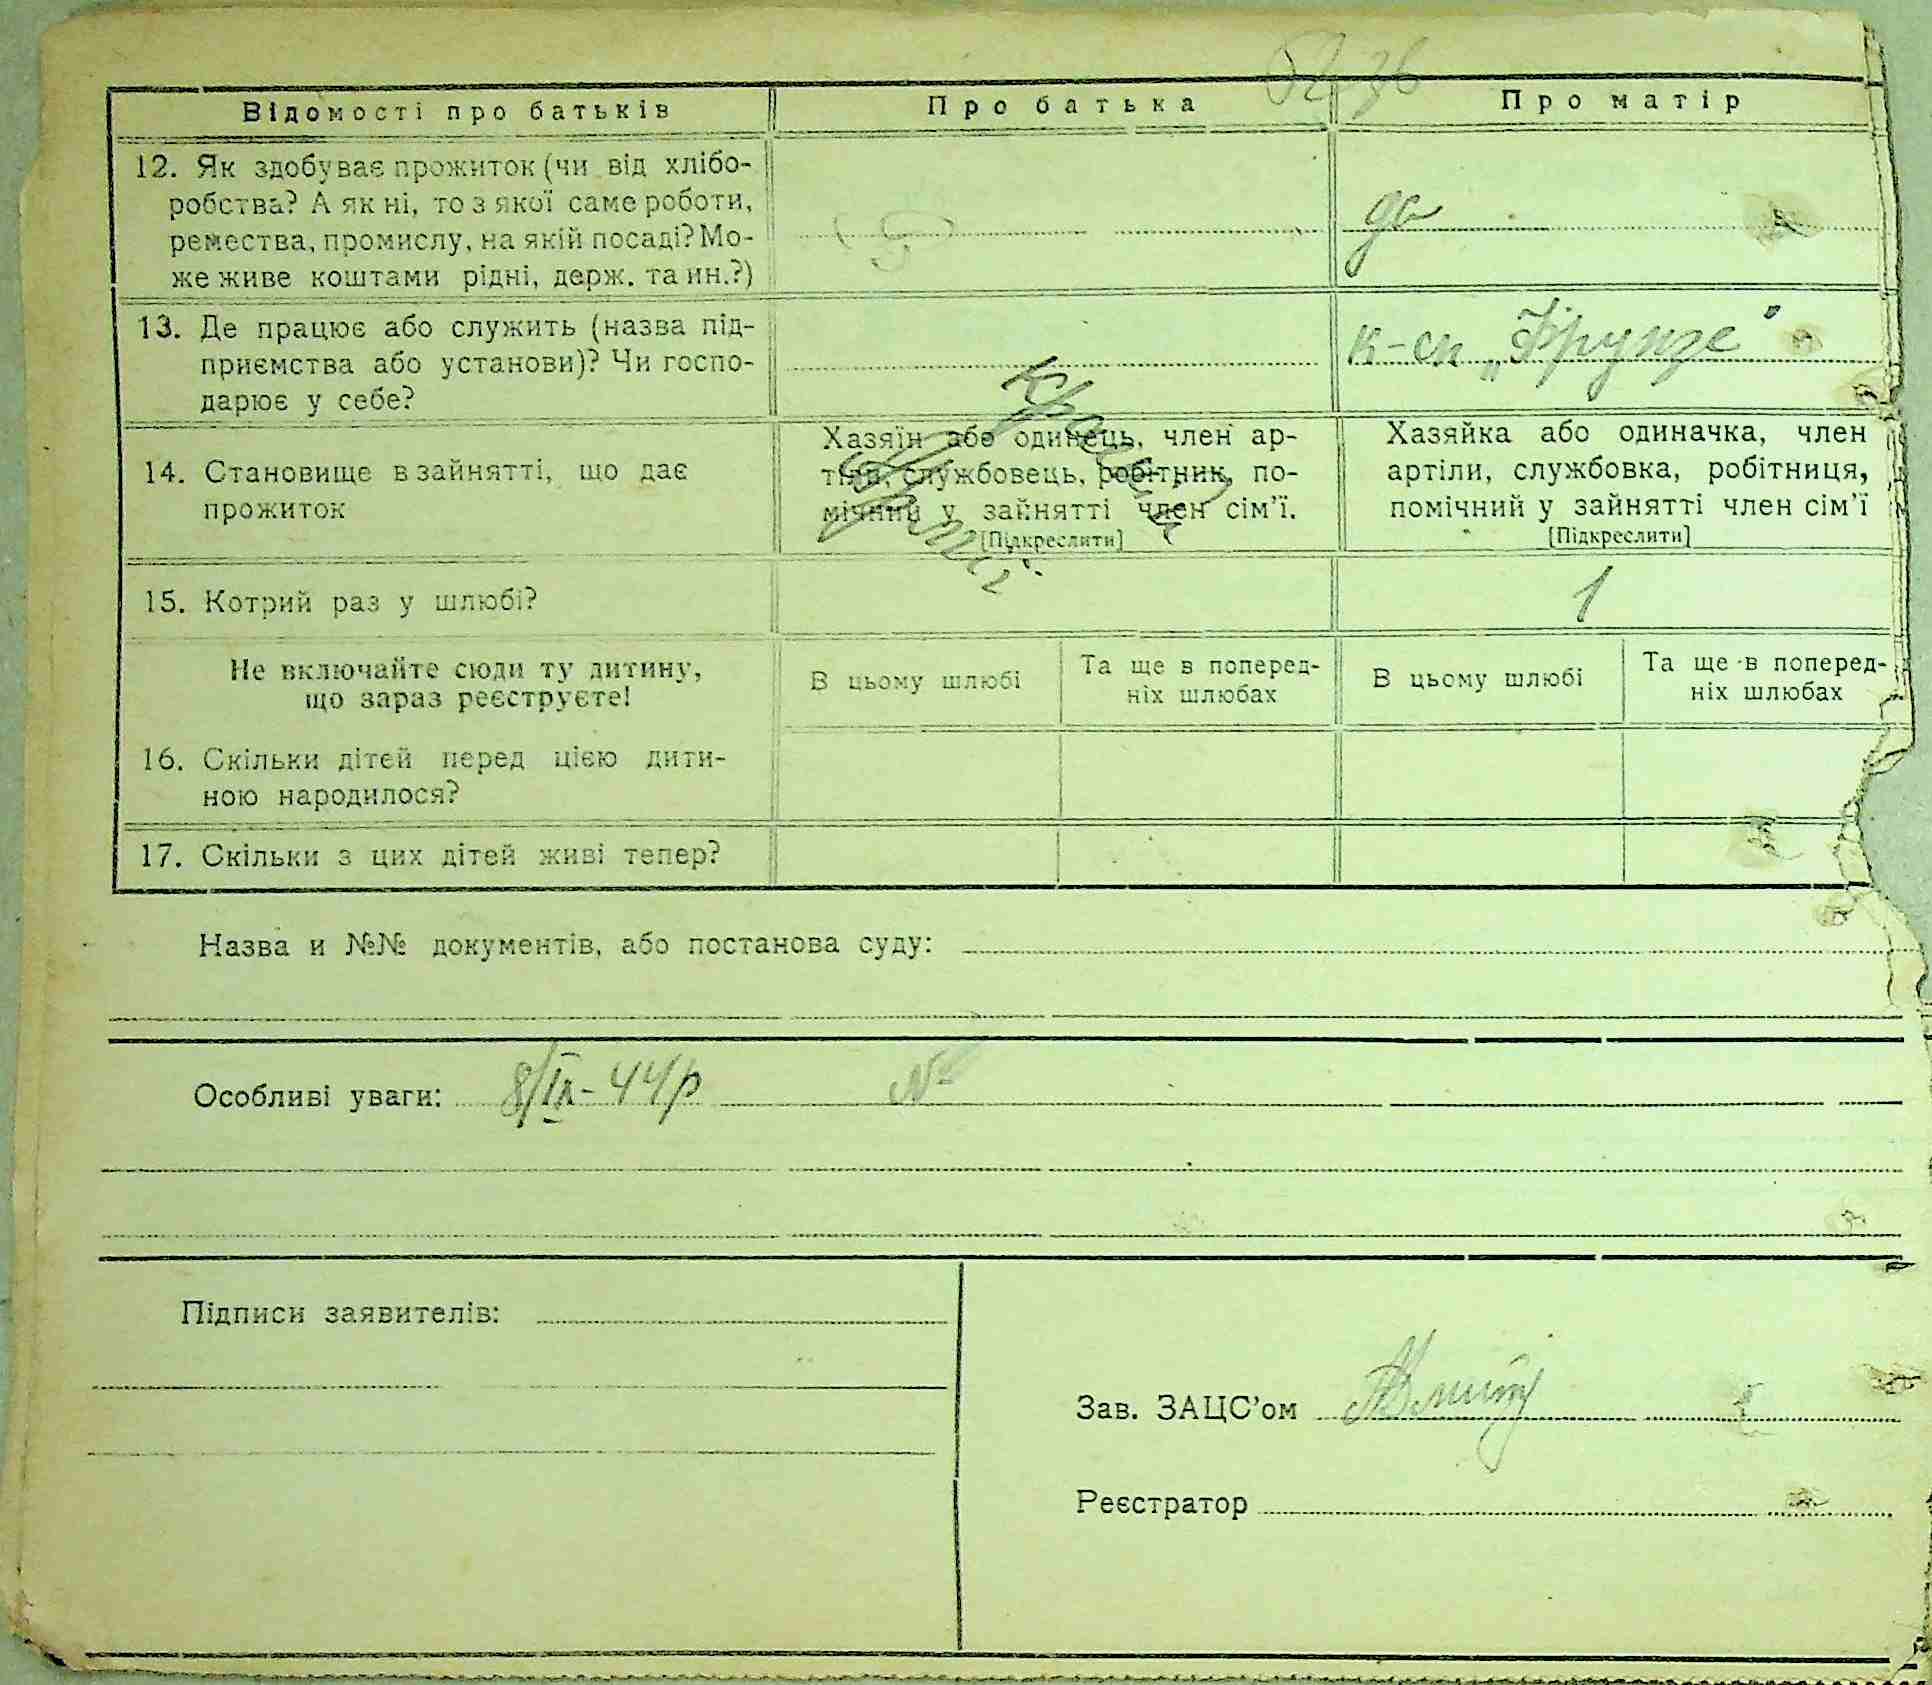 Відомості про батьків
Про батька
Про матір
12. Як здобуває прожиток (чи від хлібо-
робства? А як ні, то з якої саме роботи,
ремества, промислу, на якій посаді? Мо-
же живе коштами рідні, держ. та ин.?)
да
13. Де працює або служить (назва під-
приємства або установи)? Чи госпо-
дарює у себе?
к-сп „Фрунзе"
14. Становище в зайнятті, що дає
прожиток
Хазяїн або одинець, член ар-
тіли, службовець, робітник, по-
мічний у зайнятті член сім'ї.
[Підкреслити]
Хазяйка або одиначка, член
артіли, службовка, робітниця,
помічний у зайнятті член сім'ї
[Підкреслити]
Красній
Армії
15. Котрий раз у шлюбі?
1
Не включайте сюди ту дитину,
що зараз реєструєте!
В цьому шлюбі
Та ще в поперед-
ніх шлюбах
В цьому шлюбі
Та ще в поперед-
ніх шлюбах
16. Скільки дітей перед цією дити-
ною народилося?
17. Скільки з цих дітей живі тепер?
Назва и №№ документів, або постанова суду:
Особливі уваги: 8/ІХ-44р №
Підписи заявителів:
Зав. ЗАЦС'ом
Реєстратор